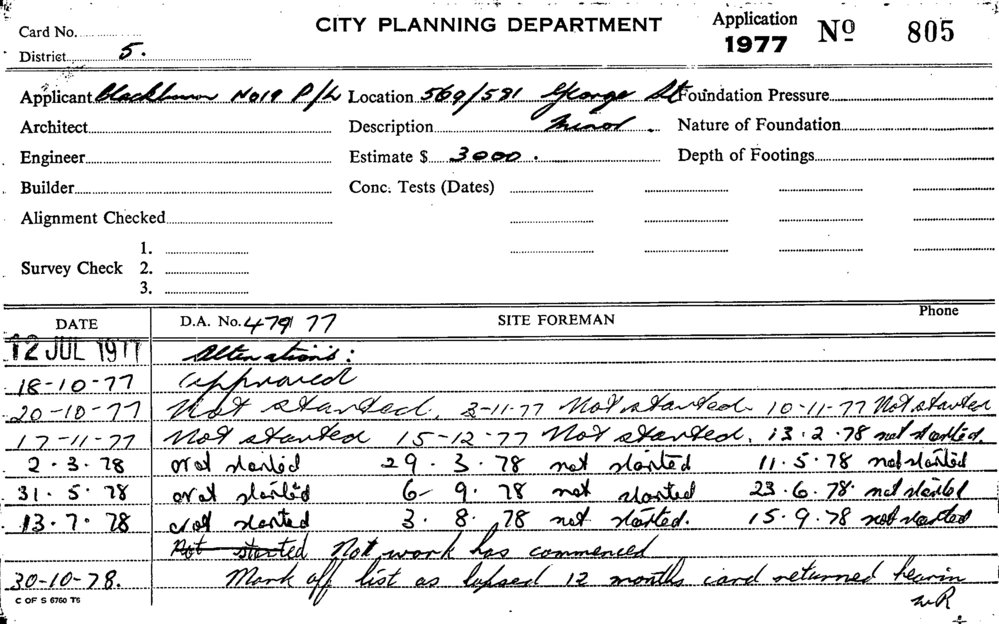 Card No. CITY PLANNING DEPARTMENT Application 1977 Nº 805
District 5.
Applicant Blackburn No19 P/L Location 569/581 George St Foundation Pressure
Architect Description minor. Nature of Foundation
Engineer Estimate $ 3000. Depth of Footings
Builder Conc. Tests (Dates)
Alignment Checked
1.
Survey Check 2.
3.
DATE D.A. No. 479 77 SITE FOREMAN Phone
12 JUL 1977 Alterations:
18-10-77 approved
20-10-77 Not started. 3-11-77 Not started. 10-11-77 Not started
17-11-77 Not started 15-12-77 Not started. 13.2.78 not started.
2.3.78 not started 29.3.78 not started 11.5.78 not started
31.5.78 not started 6-9.78 not started 23.6.78. not started
13.7.78 not started 3.8.78 not started. 15.9.78 not started
Not started Not work has commenced
30-10-78. Mark off list as lapsed 12 months card returned hearin
WR
C OF S 6760 T6